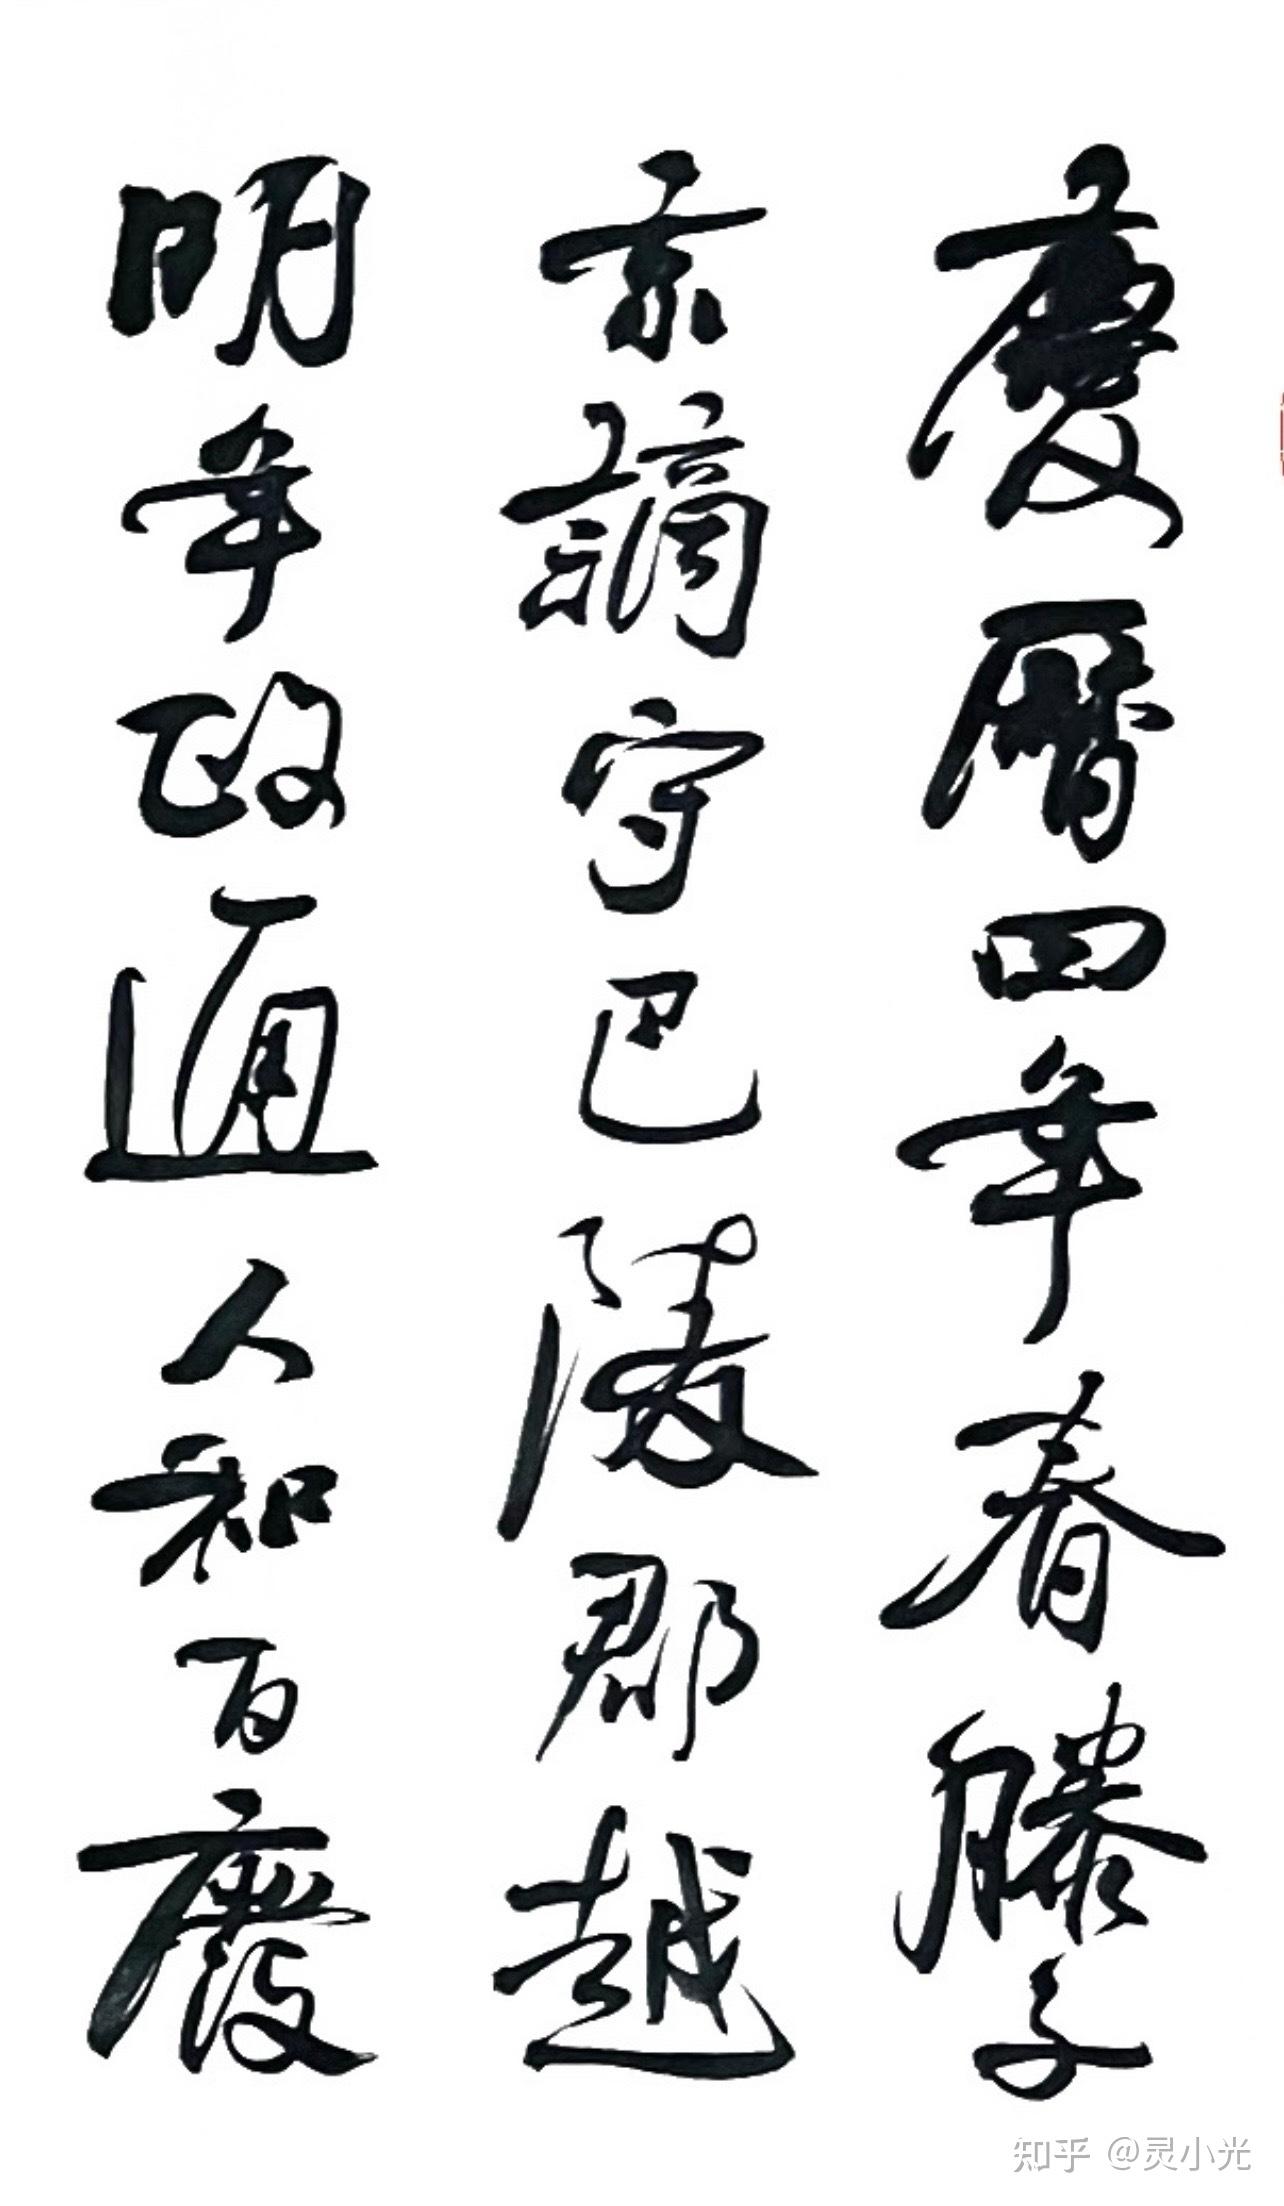 慶曆四年春滕子
京謫守巴陵郡越
明年政通人和百廢
知乎 @灵小光